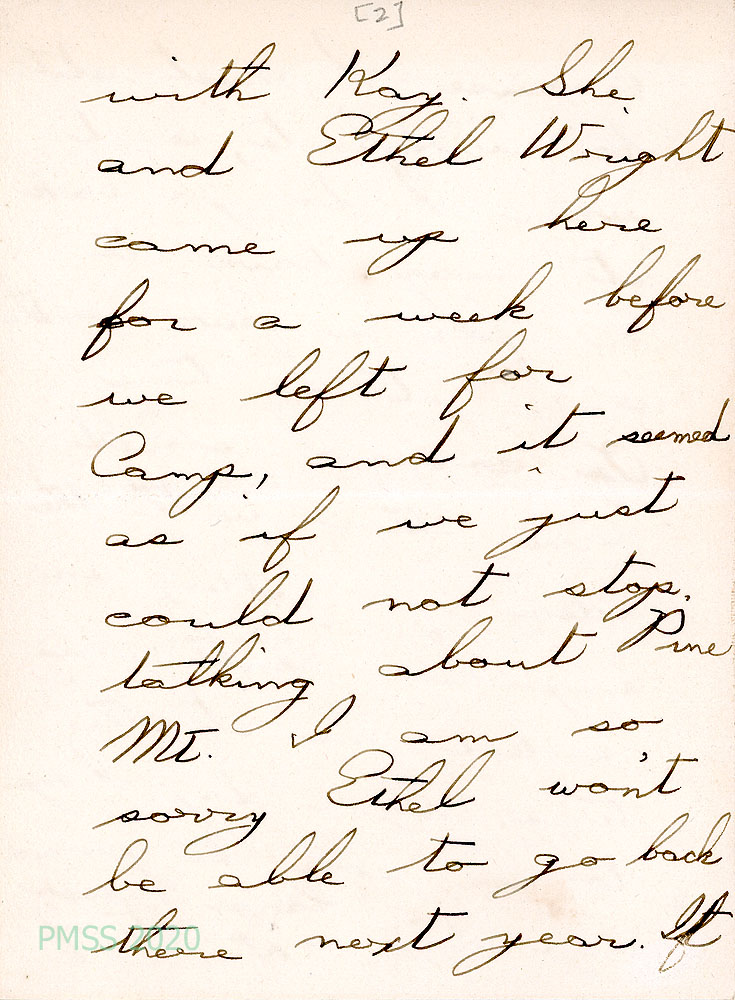 [2]
with Kay. She
and Ethel Wright
came up here
for a week before
we left for
Camp, and it seemed
as if we just
could not stop.
talking about Pine
Mt. I am so
sorry Ethel won't
be able to go back
there next year. It
PMSS 2020